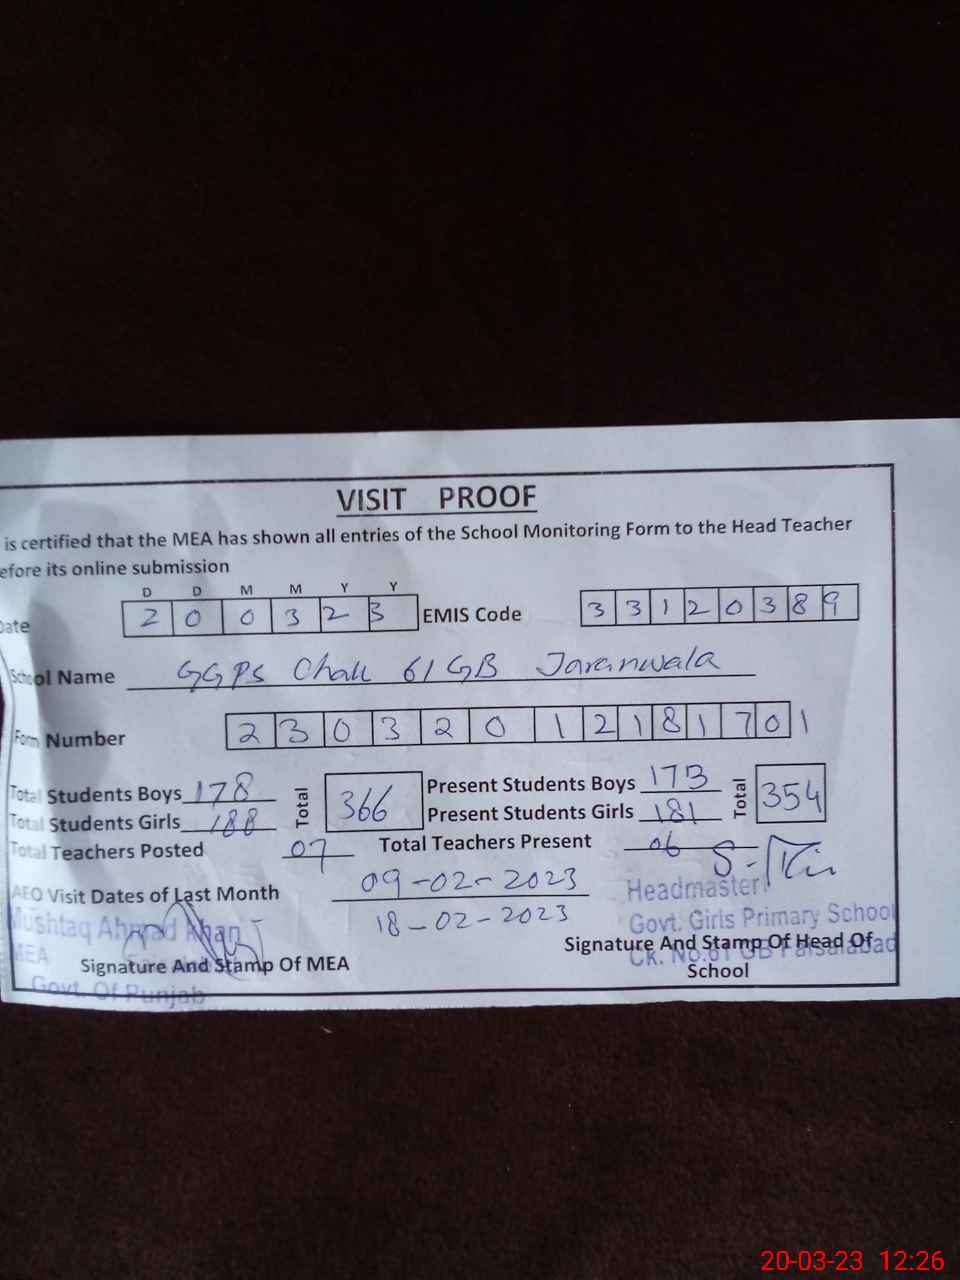 VISIT PROOF
is certified that the MEA has shown all entries of the School Monitoring Form to the Head Teacher
efore its online submission
D D M M Y Y
Date 2 0 0 3 2 3 EMIS Code 3 3 1 2 0 3 8 9
School Name GGPS Chak 61 GB Jaranwala
Form Number 2 3 0 3 2 0 1 2 1 8 1 7 0 1
Total Students Boys 178 Total 366 Present Students Boys 173 Total 354
Total Students Girls 188 Present Students Girls 181
Total Teachers Posted 07 Total Teachers Present 06
AEO Visit Dates of Last Month 09-02-2023
18-02-2023
Mushtaq Ahmad Khan
MEA
Govt. Of Punjab
Signature And Stamp Of MEA
Headmaster
Govt. Girls Primary School
Ck. No.61 GB Faisalabad
Signature And Stamp Of Head Of
School
20-03-23 12:26